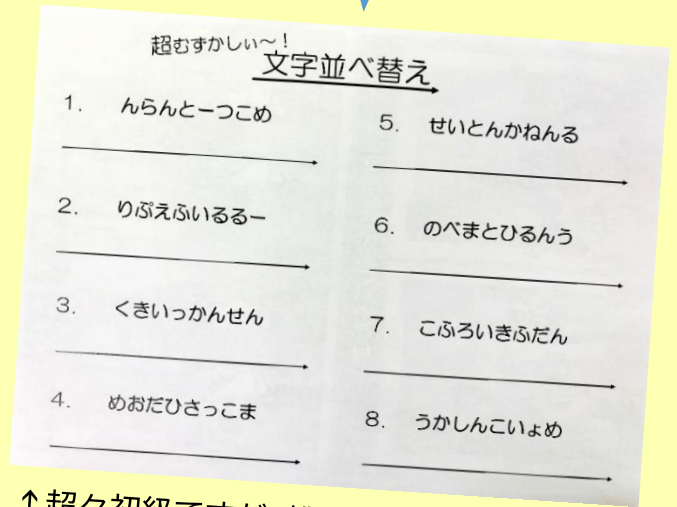 超むずかしぃ～！
文字並べ替え
1. んらんとーつこめ
2. りぷえふいるるー
3. くきいっかんせん
4. めおだひさっこま
5. せいとんかねんる
6. のべまとひるんう
7. こふろいきふだん
8. うかしんこいょめ
↑超々初級ですが